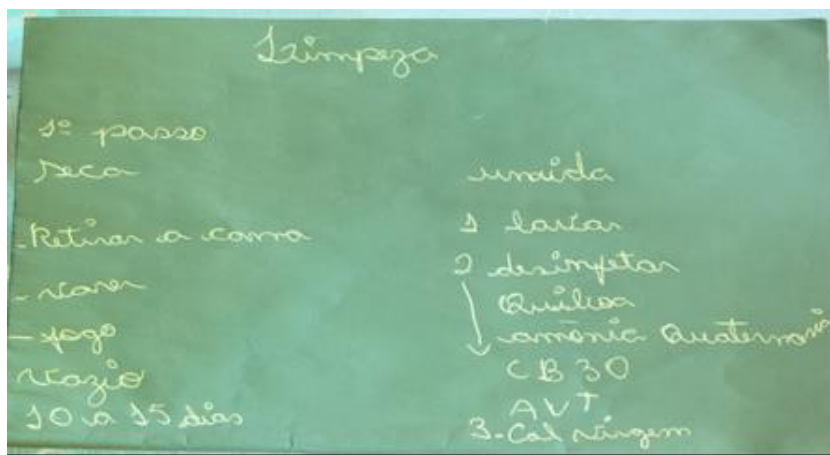 Limpeza
1º passo
Seca
- Retirar a cama
- varer
- fogo
vazio
10 a 15 dias
umida
1 lavar
2 desinfetar
Quiboa
amônia Quaternaria
CB 30
AVT
3 - Cal virgem